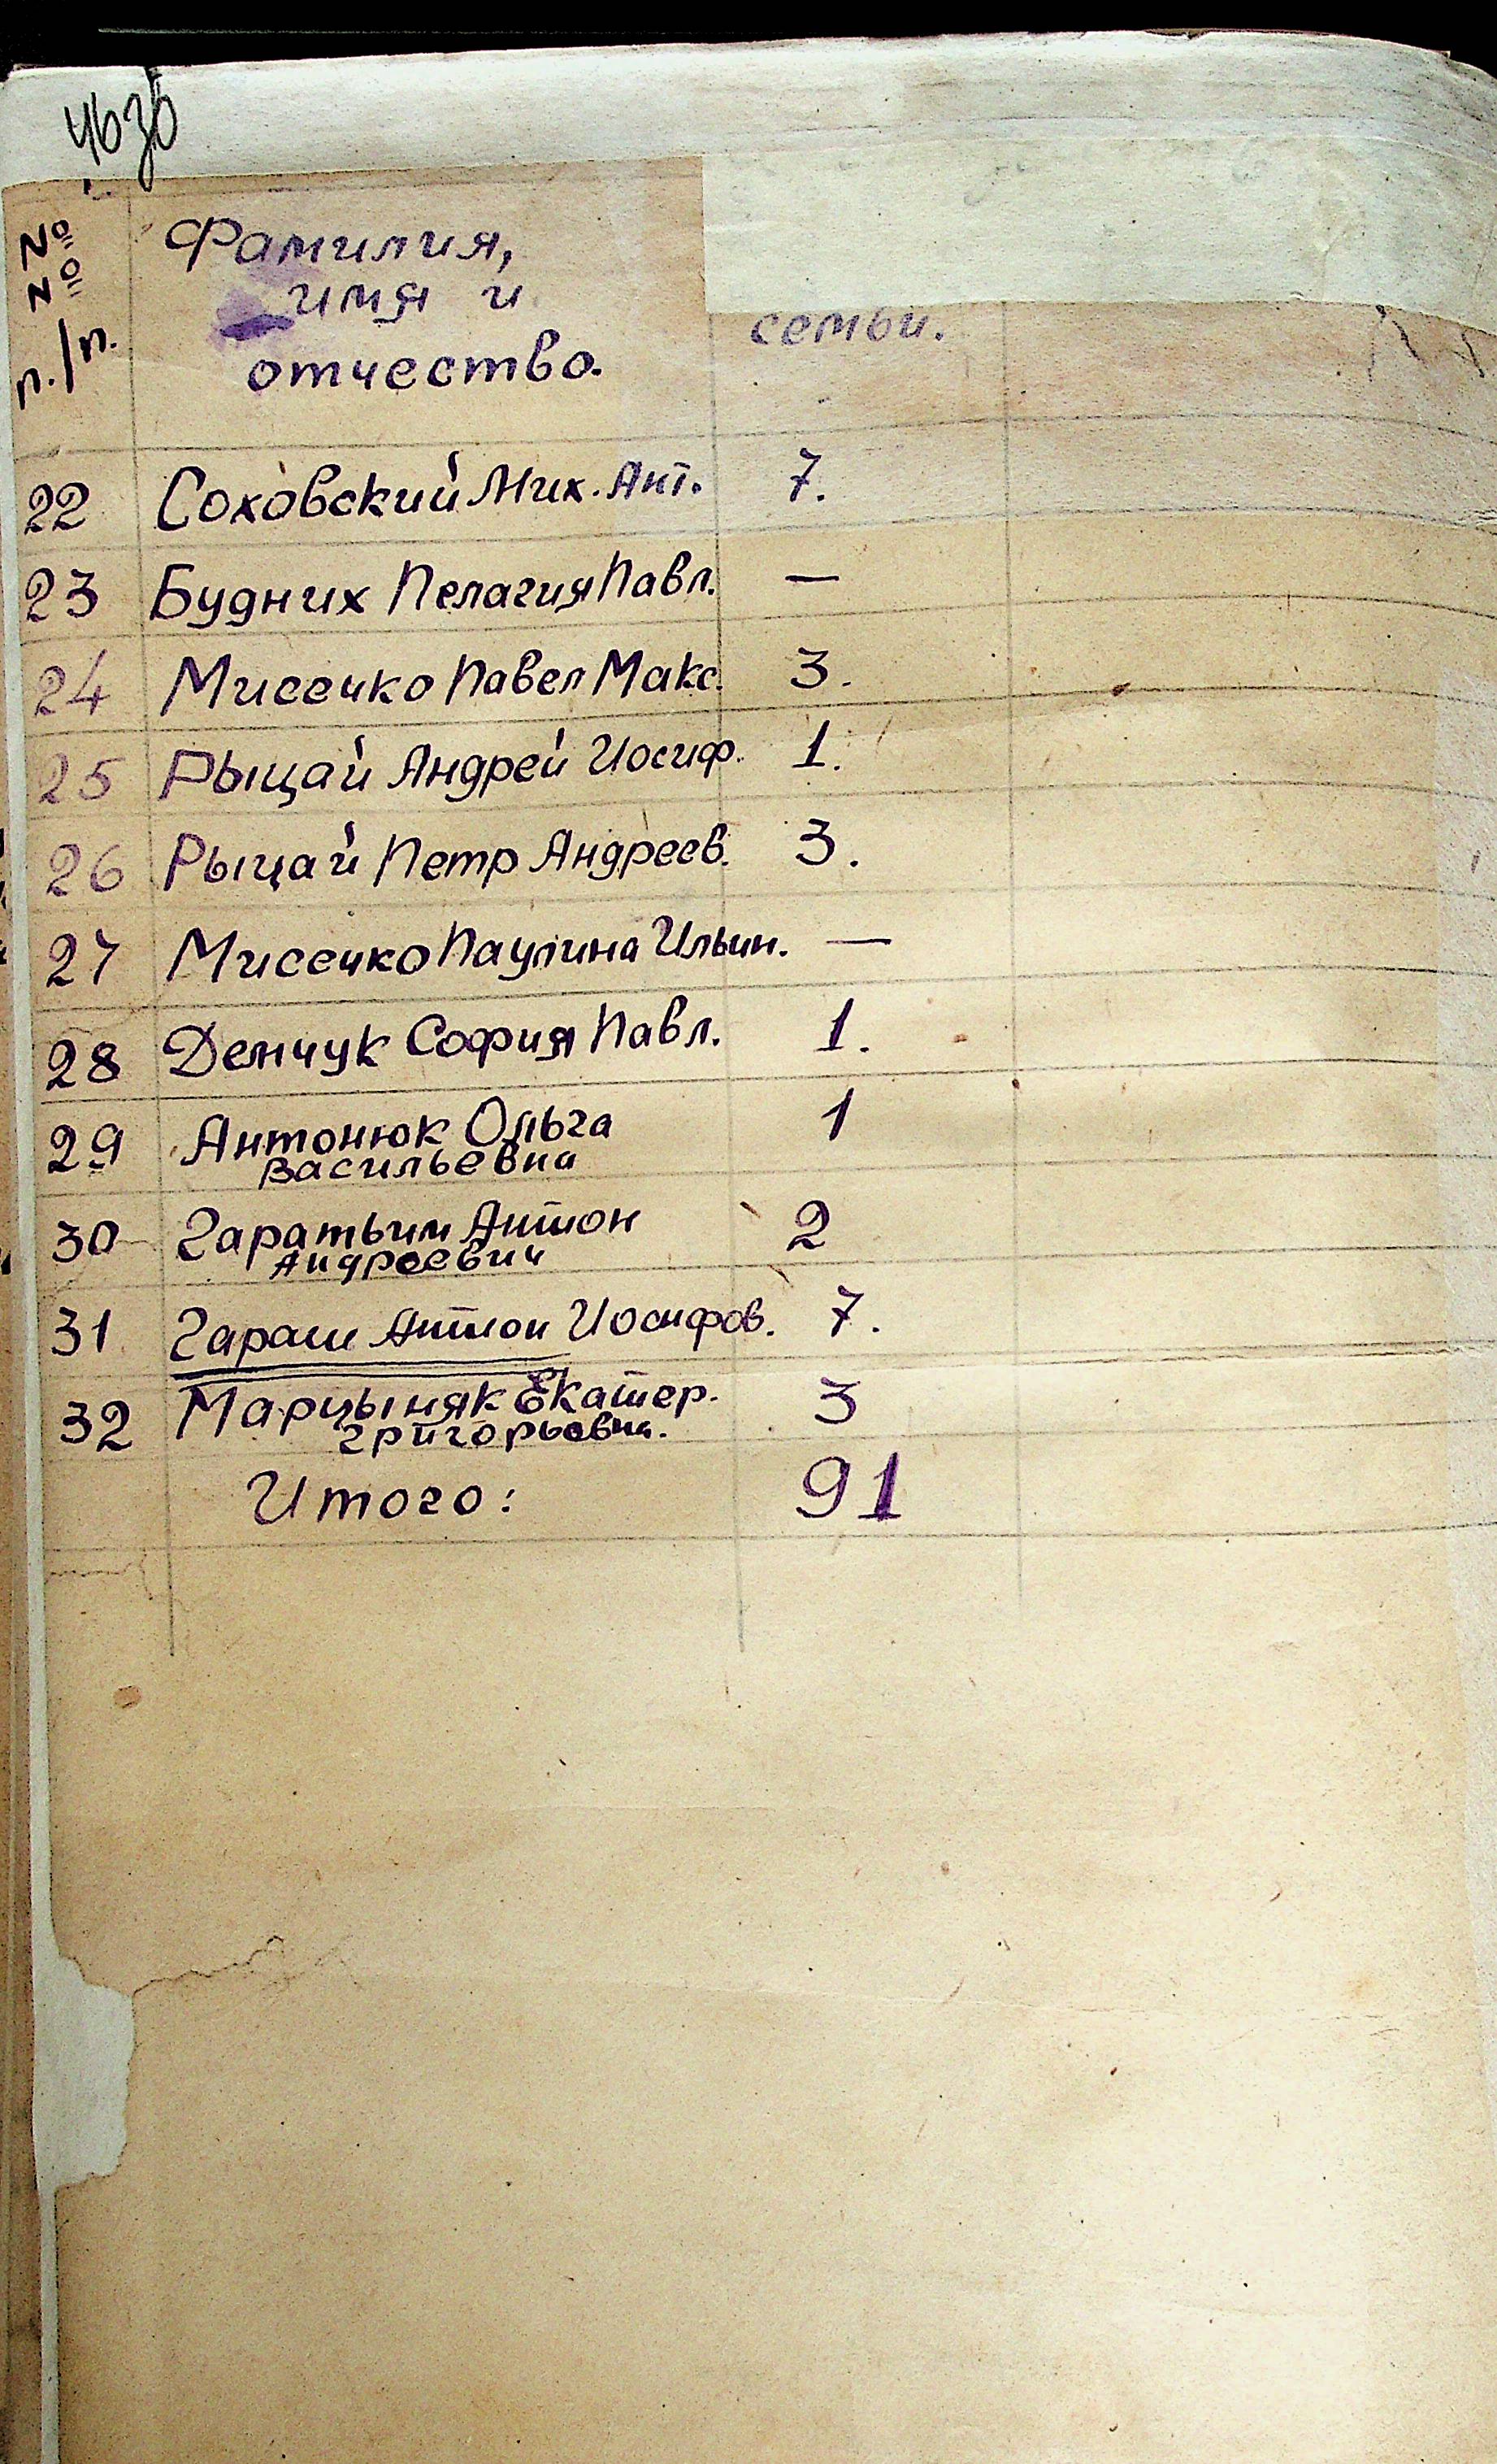 463б
№ Фамилия,
№ имя и
п./п. отчество. семьи.
22 Соховский Мих. Ант. 7.
23 Будних Пелагия Павл. —
24 Мисечко Павел Макс. 3.
25 Рыцай Андрей Иосиф. 1.
26 Рыцай Петр Андреев. 3.
27 Мисечко Паулина Ильин. —
28 Демчук София Павл. 1.
29 Антонюк Ольга 1
Васильевна
30 Гаратым Антон 2
Андреевич
31 Гараш Антон Иосифов. 7.
32 Марцыняк Екатер. 3
Григорьевна.
Итого: 91